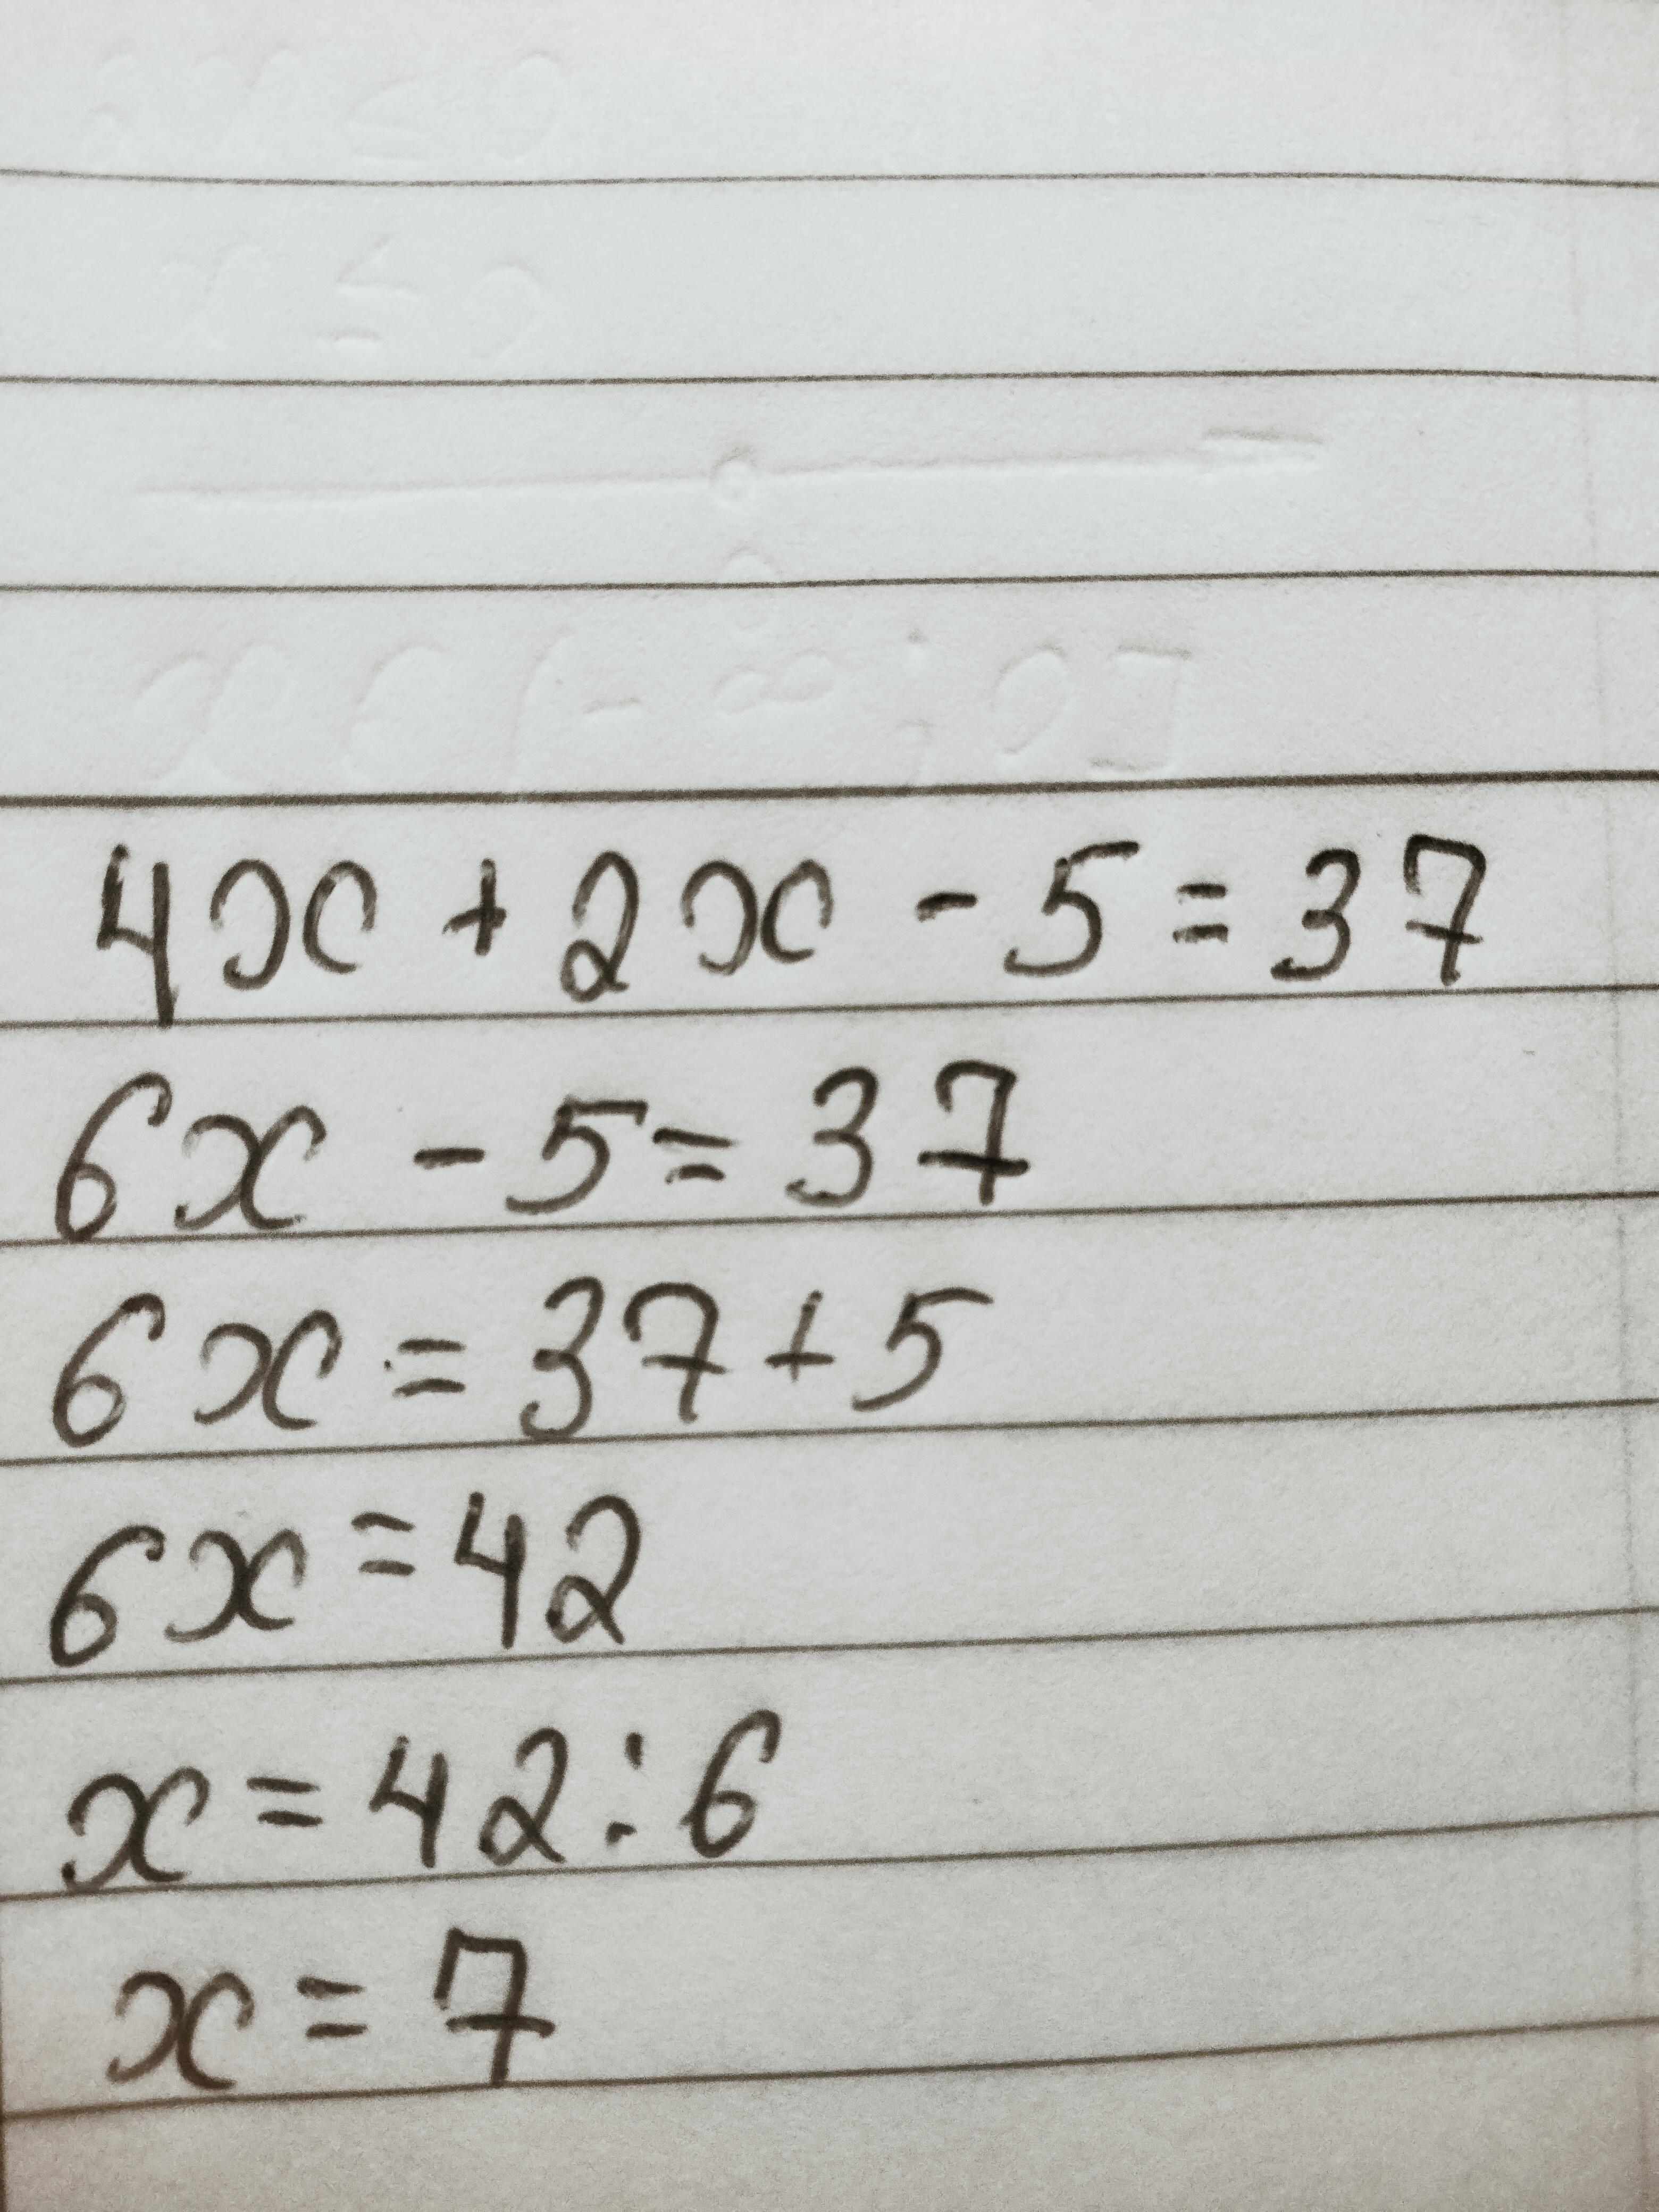 4x + 2x - 5 = 37
6x - 5 = 37
6x = 37 + 5
6x = 42
x = 42 : 6
x = 7